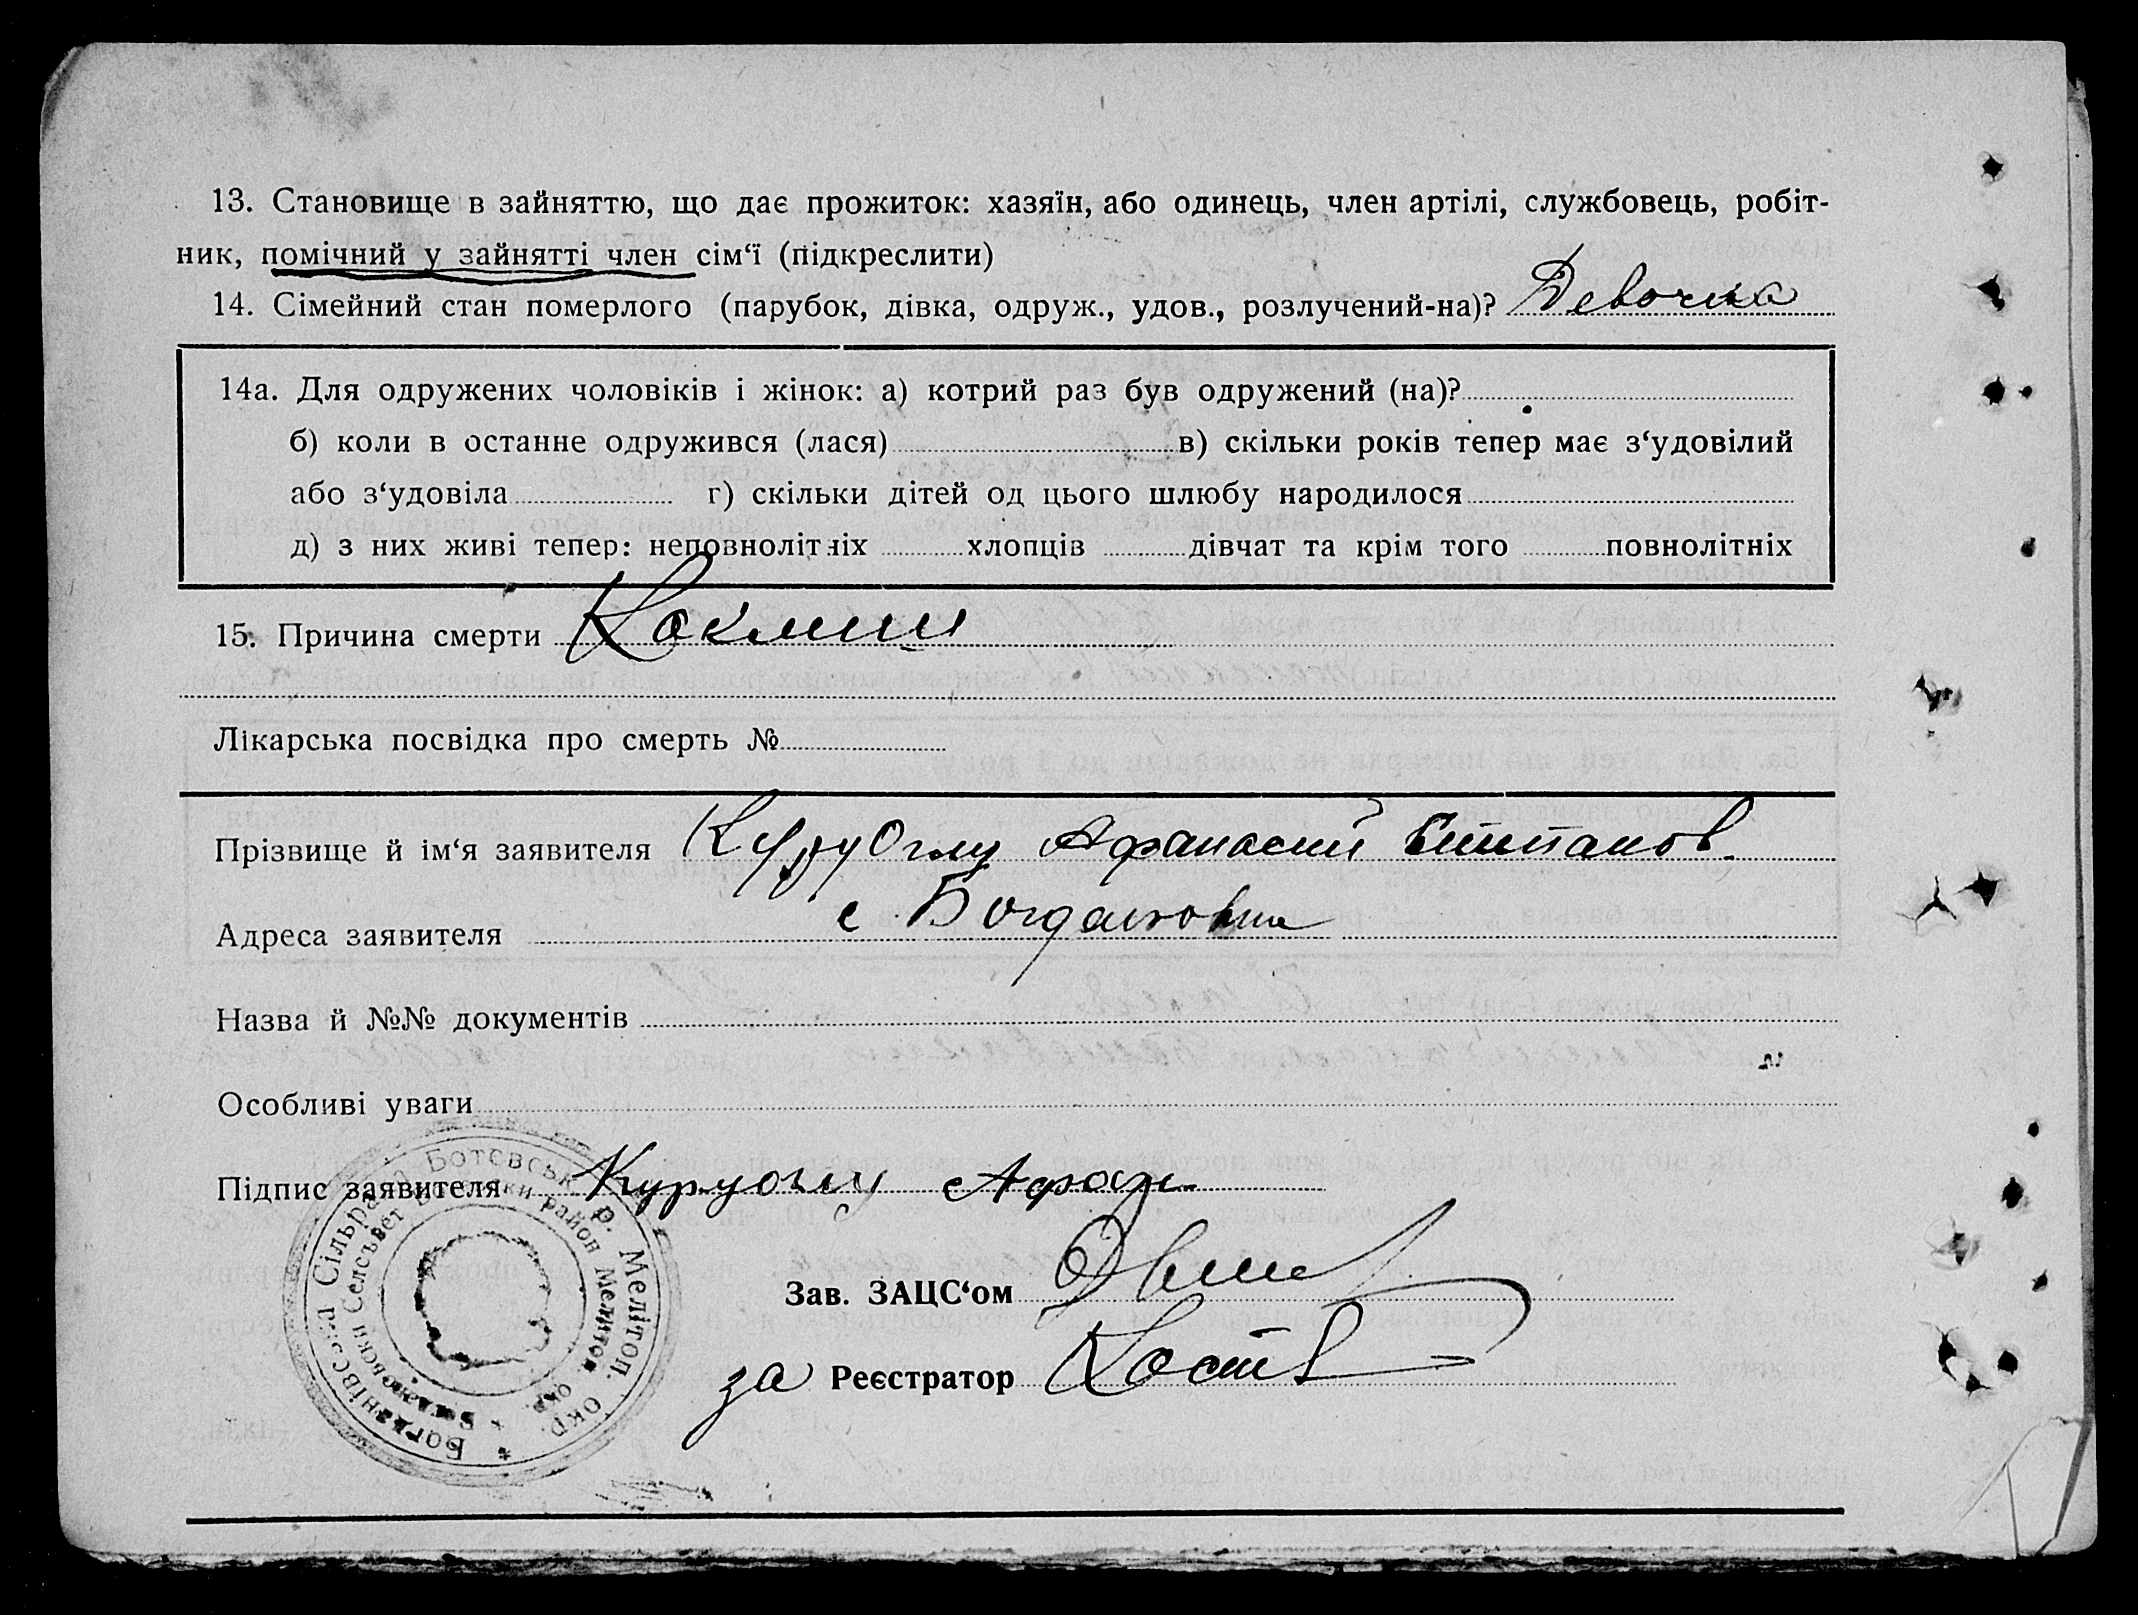 13. Становище в зайняттю, що дає прожиток: хазяїн, або одинець, член артілі, службовець, робіт-
ник, помічний у зайнятті член сім‘ї (підкреслити)
14. Сімейний стан померлого (парубок, дівка, одруж., удов., розлучений-на)? Девочка
14а. Для одружених чоловіків і жінок: а) котрий раз був одружений (на)?
б) коли в останне одружився (лася) в) скільки років тепер має з‘удовілий
або з‘удовіла г) скільки дітей од цього шлюбу народилося
д) з них живі тепер: неповнолітніх хлопців дівчат та крім того повнолітніх
15. Причина смерти Коклюш
Лікарська посвідка про смерть №
Прізвище й ім‘я заявителя Куруоглу Афанасий Степанов.
Адреса заявителя с Богдановка
Назва й №№ документів
Особливі уваги
Підпис заявителя Куруоглу Афан
Зав. ЗАЦС‘ом
за Реєстратор Костев
Богданівська Сільрада Ботєвськ р. Мелітоп. окр. *
Богдановски Сельсъвет район Мелитоп окр. *